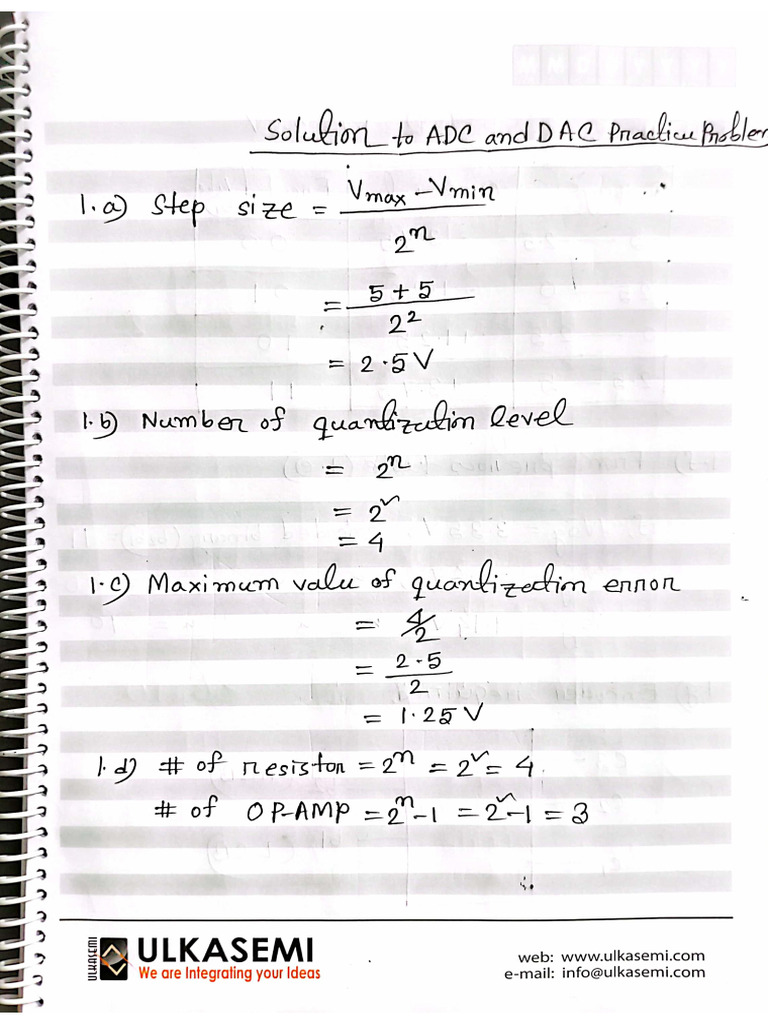 Solution to ADC and DAC Practice Problem
1.a) Step size = Vmax - Vmin / 2^n
= 5 + 5 / 2^2
= 2.5 V
1.b) Number of quantization level
= 2^n
= 2^2
= 4
1.c) Maximum value of quantization error
= Δ/2
= 2.5 / 2
= 1.25 V
1.d) # of resistor = 2^n = 2^2 = 4
# of OP-AMP = 2^n - 1 = 2^2 - 1 = 3
ULKASEMI
ULKASEMI
We are Integrating your Ideas
web: www.ulkasemi.com
e-mail: info@ulkasemi.com